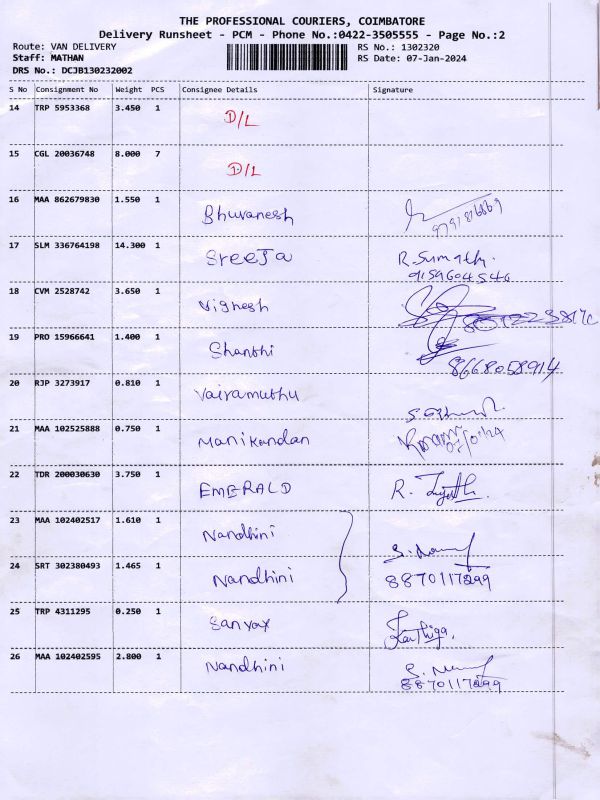 THE PROFESSIONAL COURIERS, COIMBATORE
Delivery Runsheet - PCM - Phone No.:0422-3505555 - Page No.:2
Route: VAN DELIVERY RS No.: 1302320
Staff: MATHAN RS Date: 07-Jan-2024
DRS No.: DCJB130232002
S No Consignment No Weight PCS Consignee Details Signature
14 TRP 5953368 3.450 1 D/L
15 CGL 20036748 8.000 7 D/L
16 MAA 862679830 1.550 1 Bhuvanesh
17 SLM 336764198 14.300 1 SreeJa R. Sumathy.
9159604546
18 CVM 2528742 3.650 1 Vignesh
19 PRO 15966641 1.400 1 Shanthi
8668058914
20 RJP 3273917 0.810 1 Vairamuthu
21 MAA 102525888 0.750 1 Manikandan
22 TDR 200030630 3.750 1 EMERALD R.
23 MAA 102402517 1.610 1 Nandhini
24 SRT 302380493 1.465 1 Nandhini 8870117299
25 TRP 4311295 0.250 1 Sanyox Karthiga.
26 MAA 102402595 2.800 1 Nandhini
8870117299